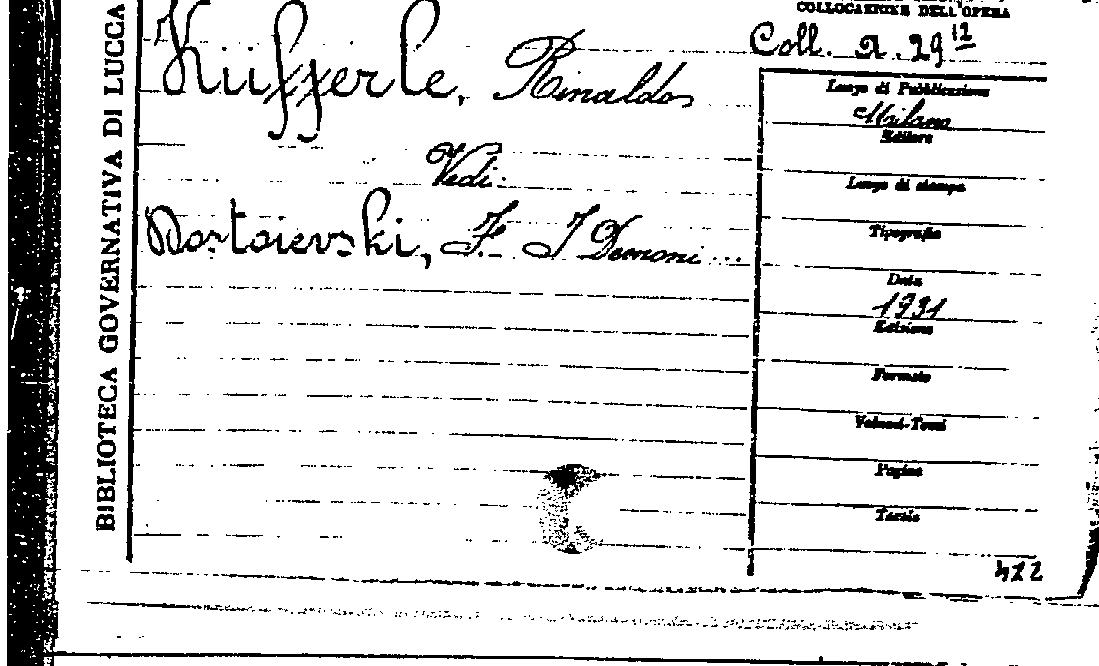 BIBLIOTECA GOVERNATIVA DI LUCCA
COLLOCAZIONE DELL'OPERA
Coll. A. 29 12
Küfferle, Rinaldo
Vedi:
Dostoievski, F. I Demoni ...
Luogo di Pubblicazione
Milano
Editore
Luogo di stampa
Tipografia
Data
1931
Edizione
Formato
Volumi-Tomi
Pagine
Tavole
422